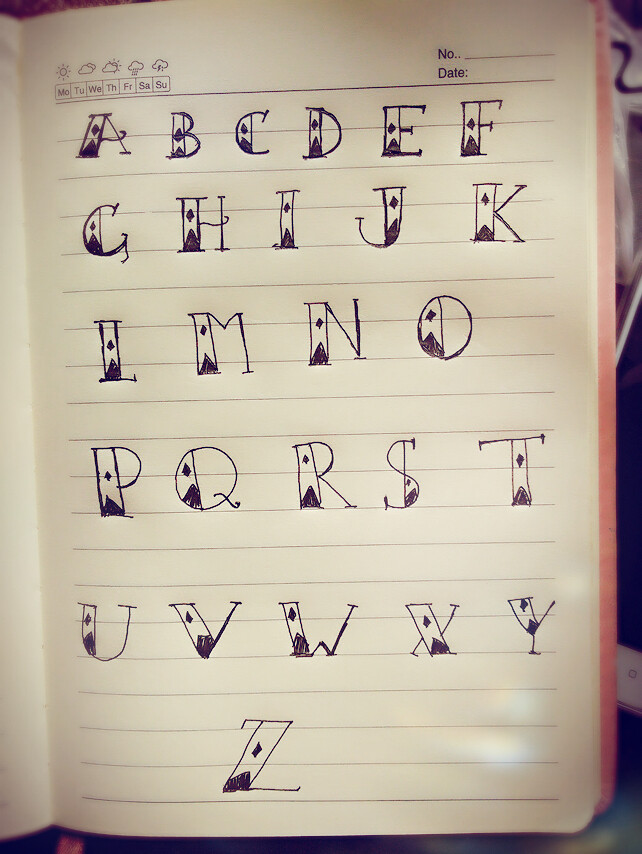 No..
Date:
Mo Tu We Th Fr Sa Su
A B C D E F
G H I J K
L M N O
P Q R S T
U V W X Y
Z